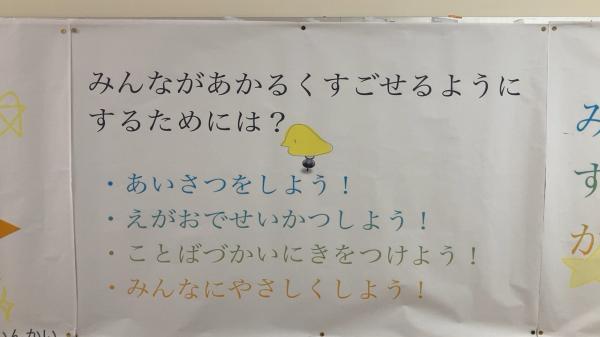 みんながあかるくすごせるように
するためには？
・あいさつをしよう！
・えがおでせいかつしよう！
・ことばづかいにきをつけよう！
・みんなにやさしくしよう！
み
す
か
いんかい